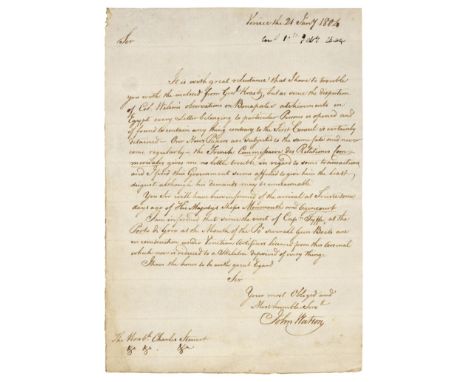 Venice the 21 Jan.y 1804
Sir
It is with great reluctance that I have to trouble
you with the inclosed from but as since the dispertion
of Col. Wilson's observations on Bonaparte's atchievements in
Egypt every Letter belonging to particular Persons is opened and
if found to contain any thing contrary to the First Consul is certainly
detained — Our News Papers are subjected to the same fate and never
come regularly — the French Commissaire des Relations Com-
merciales gives me no little trouble in regard to some transactions
and I find this Government seems affraid to give him the least
disgust although his demands may be unreasonable
You Sir will have been informed of the arrival at Trieste some
days ago of His Majesty's Ships Monmouth and Agincourt
I am informed that since the visit of Capt.n at the
Porto di Goro at the Mouth of the Po several Gun Boats are
in construction under Venetian Artificers licenced from this Arsenal
which now is reduced to a Skeleton deprived of every thing.
I have the honor to be with great regard
Sir
Your most Obliged and
Most humble Serv.t
John Watson
The Hon.ble Charles Stewart
&c. &c. &c.